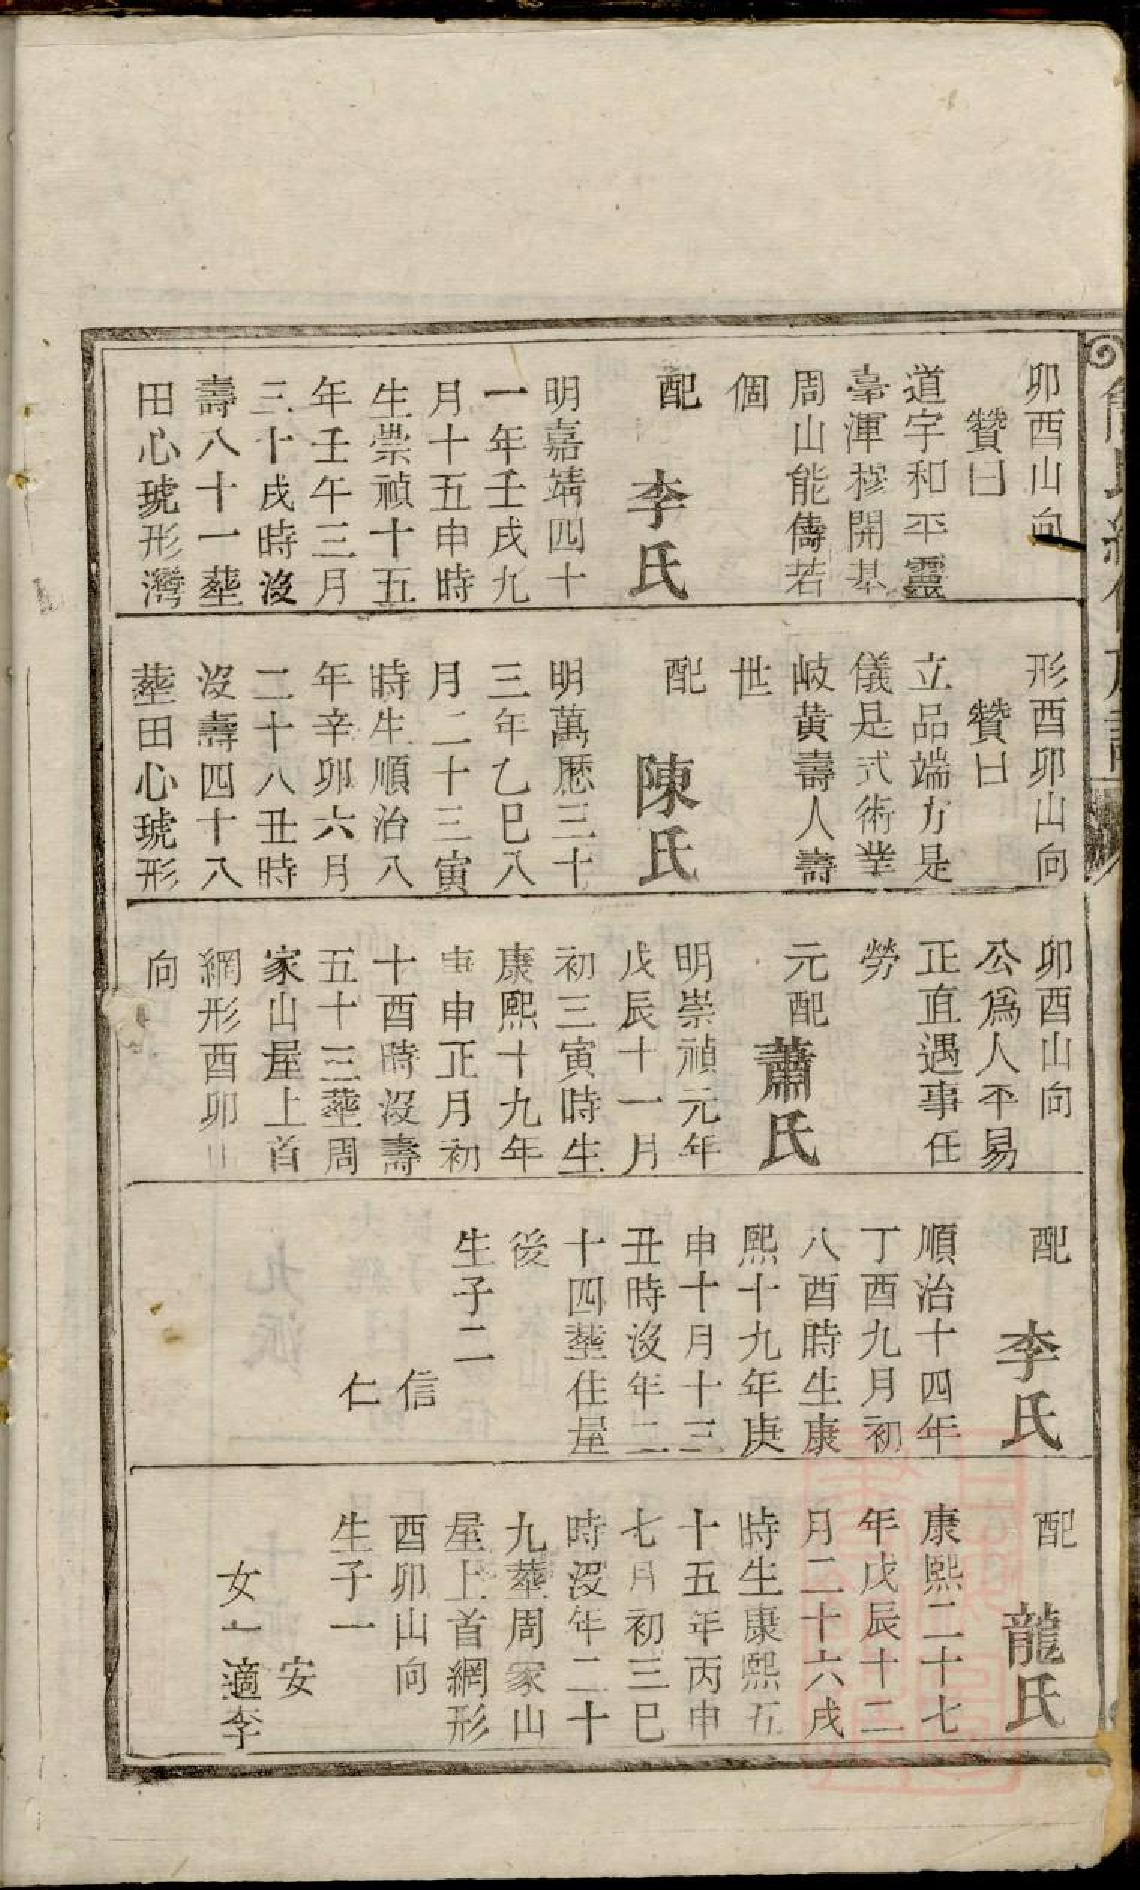 卯酉山向
贊曰
道宇和平靈
臺渾穆開基
周山能儔若
個
配
李氏
明嘉靖四十
一年壬戌九
月十五申時
生崇禎十五
年壬午三月
三十戌時沒
壽八十一塟
田心琥形灣
形酉卯山向
贊曰
立品端方是
儀是式術業
岐黃壽人壽
世
配
陳氏
明萬厯三十
三年乙巳八
月二十三寅
時生順治八
年辛卯六月
二十八丑時
沒壽四十八
塟田心琥形
卯酉山向
公爲人平易
正直遇事任
勞
元配
蕭氏
明崇禎元年
戊辰十一月
初三寅時生
康熙十九年
庚申正月初
十酉時沒壽
五十三塟周
家山屋上首
網形酉卯山
向
配
李氏
順治十四年
丁酉九月初
八酉時生康
熙十九年庚
申十月十三
丑時沒年二
十四塟住屋
後
生子二
信
仁
配
龍氏
康熙二十七
年戊辰十二
月二十六戌
時生康熙五
十五年丙申
七月初三巳
時沒年二十
九塟周家山
屋上首網形
酉卯山向
生子一
安
女一適李